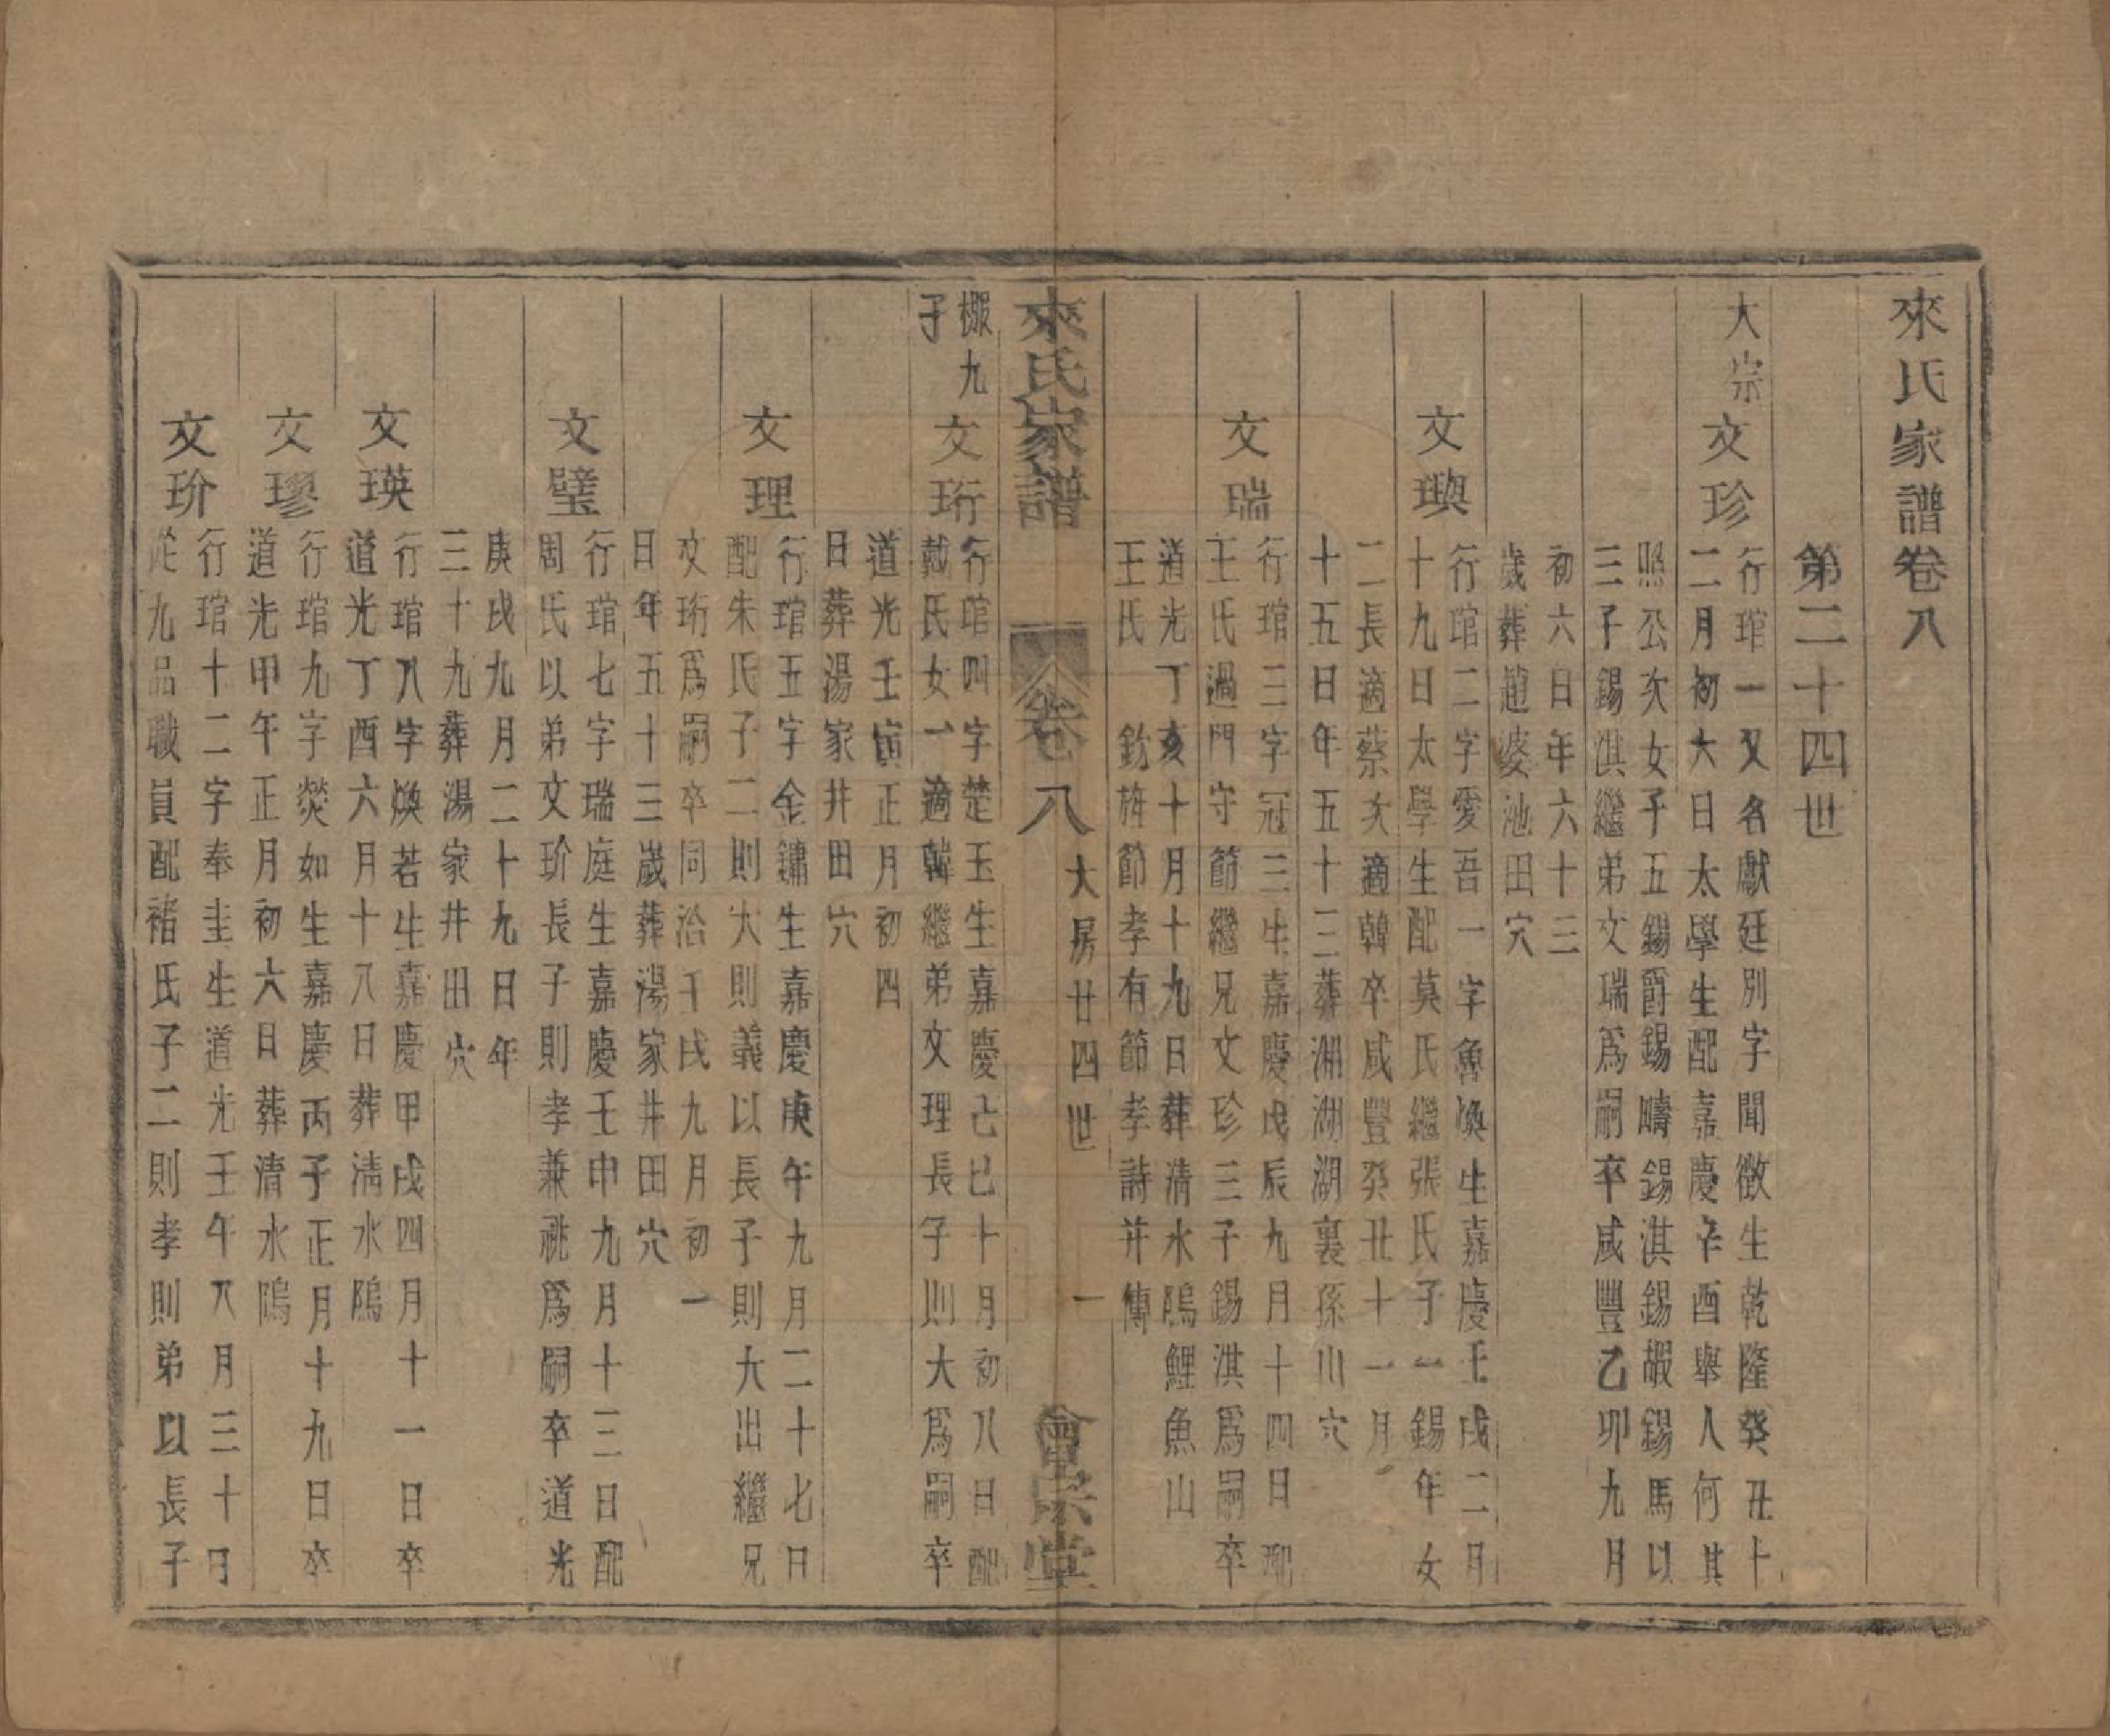 來氏家譜卷八
第二十四世
大宗
文珍
行琯一又名獻廷別字聞徴生乾隆癸丑十
二月初六日太學生配嘉慶辛酉舉人何其
照公次女子五錫爵錫疇錫淇錫嘏錫馬以
三子錫淇繼弟文瑞爲嗣卒咸豐乙卯九月
初六日年六十三
歲葬趙婆池田穴
文璵
行琯二字愛吾一字魯煥生嘉慶壬戌二月
十九日太學生配莫氏繼張氏子一錫年女
二長適蔡次適韓卒咸豐癸丑十一月
十五日年五十二葬湘湖湖裏孫山穴
文瑞
行琯三字冠三生嘉慶戊辰九月十四日配
王氏過門守節繼兄文珍三子錫淇爲嗣卒
道光丁亥十月十九日葬清水隖鯉魚山
王氏 欽旌節孝有節孝詩并傳
來氏家譜 卷八 大房廿四世 一 會宗堂
棷九
子
文珩
行琯四字楚玉生嘉慶己巳十月初八日配
戴氏女一適韓繼弟文理長子則大爲嗣卒
道光壬寅正月初四
日葬湯家井田穴
文理
行琯五字金鏽生嘉慶庚午九月二十七日
配朱氏子二則大則義以長子則大出繼兄
文珩爲嗣卒同治壬戌九月初一
日年五十三歲葬湯家井田穴
文璧
行琯七字瑞庭生嘉慶壬申九月十三日配
周氏以弟文玠長子則孝兼祧爲嗣卒道光
庚戌九月二十九日年
三十九葬湯家井田穴
文瑛
行琯八字煥若生嘉慶甲戌四月十一日卒
道光丁酉六月十八日葬清水隖
文璆
行琯九字熒如生嘉慶丙子正月十九日卒
道光甲午正月初六日葬清水隖
文玠
行琯十二字奉圭生道光壬午八月三十日
從九品職員配褚氏子二則孝則弟以長子